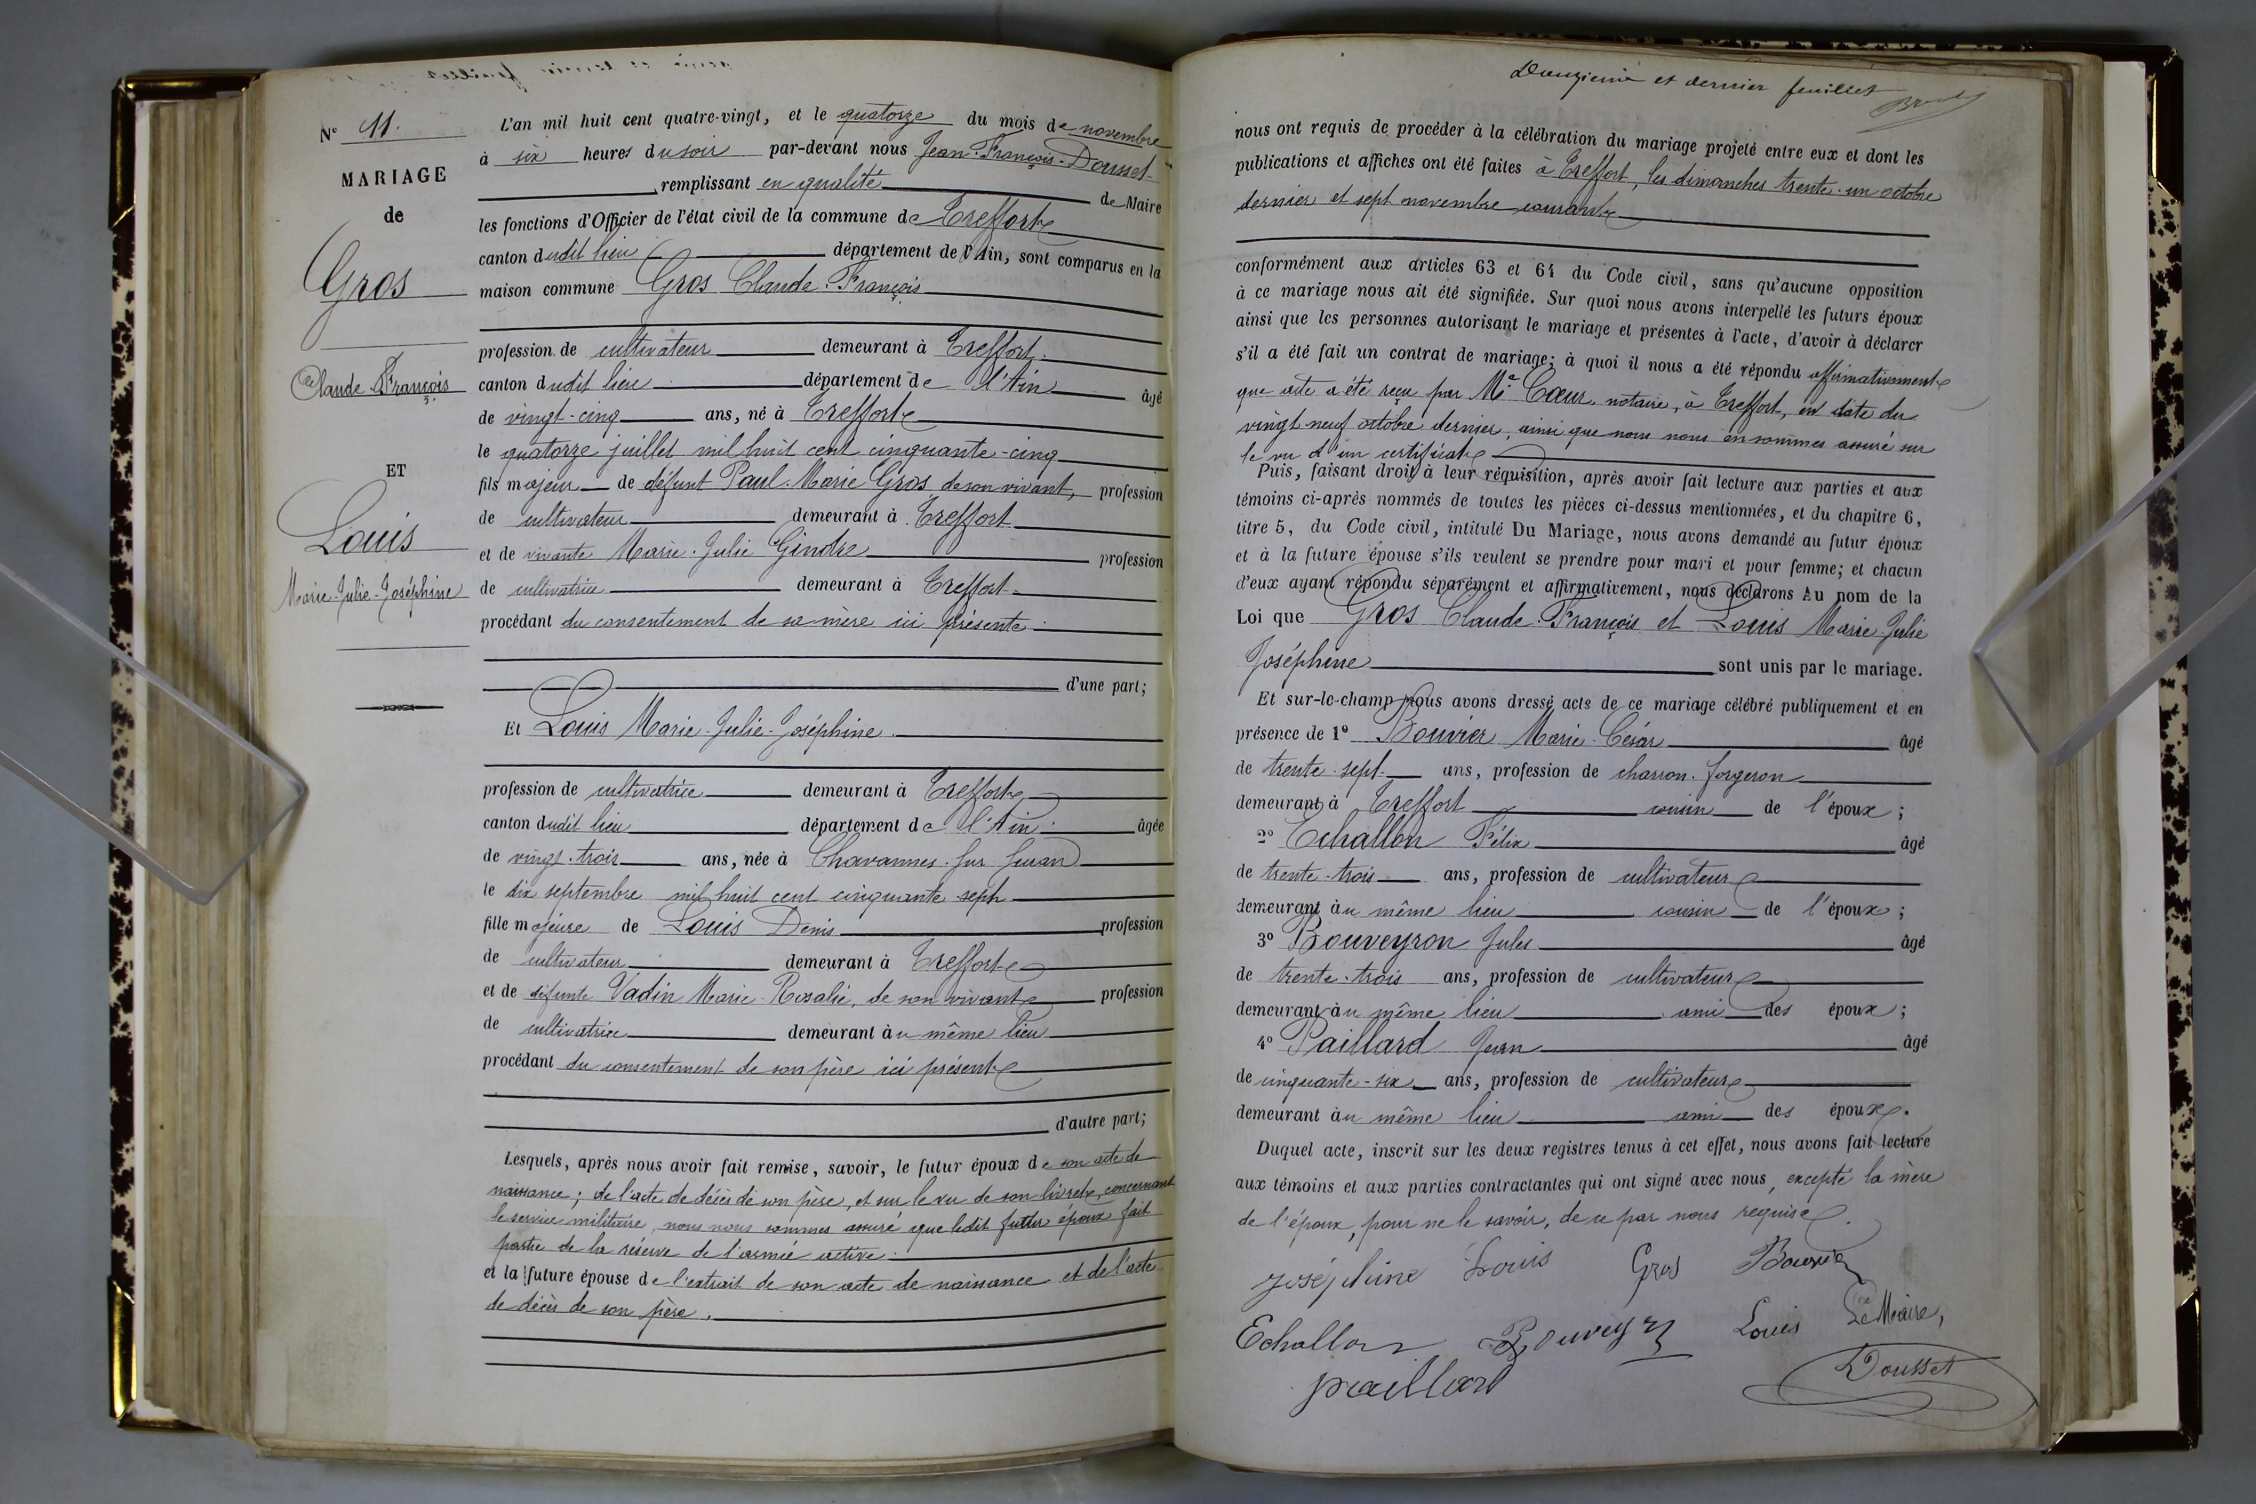 N° 11.
MARIAGE
de
Gros
Claude François
ET
Louis
Marie-Julie-Joséphine
L'an mil huit cent quatre-vingt, et le quatorze du mois de novembre
à six heures du soir par-devant nous Jean-François Dousset
remplissant en qualité de Maire
les fonctions d'Officier de l'état civil de la commune de Treffort
canton dudit lieu département de l'Ain, sont comparus en la
maison commune Gros Claude-François
profession de cultivateur demeurant à Treffort
canton dudit lieu département de l'Ain âgé
de vingt-cinq ans, né à Treffort
le quatorze juillet mil huit cent cinquante-cinq
fils majeur de défunt Paul-Marie Gros de son vivant, profession
de cultivateur demeurant à Treffort
et de vivante Marie-Julie Gindre profession
de cultivatrice demeurant à Treffort
procédant du consentement de sa mère ici présente
d'une part;
Et Louis Marie-Julie-Joséphine
profession de cultivatrice demeurant à Treffort
canton dudit lieu département de l'Ain âgée
de vingt-trois ans, née à Chavannes-sur-Suran
le dix septembre mil huit cent cinquante sept
fille majeure de Louis Denis profession
de cultivateur demeurant à Treffort
et de défunte Vadin Marie-Rosalie, de son vivant profession
de cultivatrice demeurant au même lieu
procédant du consentement de son père ici présent
d'autre part;
Lesquels, après nous avoir fait remise, savoir, le futur époux de son acte de
naissance; de l'acte de décès de son père, et sur le vu de son livret, concernant
le service militaire, nous nous sommes assuré que ledit futur époux fait
partie de la réserve de l'armée active.
et la future épouse de l'extrait de son acte de naissance et de l'acte
de décès de son père.
Douzième et dernier feuillet
nous ont requis de procéder à la célébration du mariage projeté entre eux et dont les
publications et affiches ont été faites à Treffort, les dimanches trente-un octobre
dernier et sept novembre courant
conformément aux articles 63 et 64 du Code civil, sans qu'aucune opposition
à ce mariage nous ait été signifiée. Sur quoi nous avons interpellé les futurs époux
ainsi que les personnes autorisant le mariage et présentes à l'acte, d'avoir à déclarer
s'il a été fait un contrat de mariage; à quoi il nous a été répondu affirmativement
que acte a été reçu par Me Cœur, notaire, à Treffort, en date du
vingt neuf octobre dernier, ainsi que nous nous en sommes assuré sur
le vu d'un certificat
Puis, faisant droit à leur réquisition, après avoir fait lecture aux parties et aux
témoins ci-après nommés de toutes les pièces ci-dessus mentionnées, et du chapitre 6,
titre 5, du Code civil, intitulé Du Mariage, nous avons demandé au futur époux
et à la future épouse s'ils veulent se prendre pour mari et pour femme; et chacun
d'eux ayant répondu séparément et affirmativement, nous déclarons au nom de la
Loi que Gros Claude-François et Louis Marie Julie
Joséphine sont unis par le mariage.
Et sur-le-champ nous avons dressé acte de ce mariage célébré publiquement et en
présence de 1° Bouvier Marie-César âgé
de trente-sept ans, profession de charron-forgeron
demeurant à Treffort cousin de l'époux;
2° Echallon Félix âgé
de trente-trois ans, profession de cultivateur
demeurant au même lieu cousin de l'époux;
3° Bouveyron Jules âgé
de trente-trois ans, profession de cultivateur
demeurant au même lieu ami des époux;
4° Paillard Jean âgé
de cinquante-six ans, profession de cultivateur
demeurant au même lieu ami des époux.
Duquel acte, inscrit sur les deux registres tenus à cet effet, nous avons fait lecture
aux témoins et aux parties contractantes qui ont signé avec nous, excepté la mère
de l'époux, pour ne le savoir, de ce par nous requise.
Joséphine Louis Gros Bouvier
Echallon Bouveyron Louis Le Maire,
paillard Dousset